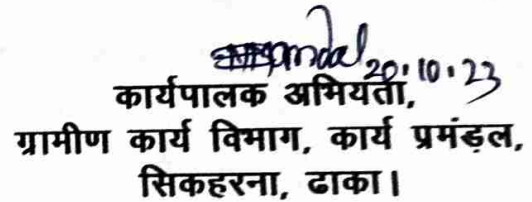 20.10.23
कार्यपालक अभियंता,
ग्रामीण कार्य विभाग, कार्य प्रमंड़ल,
सिकहरना, ढाका।